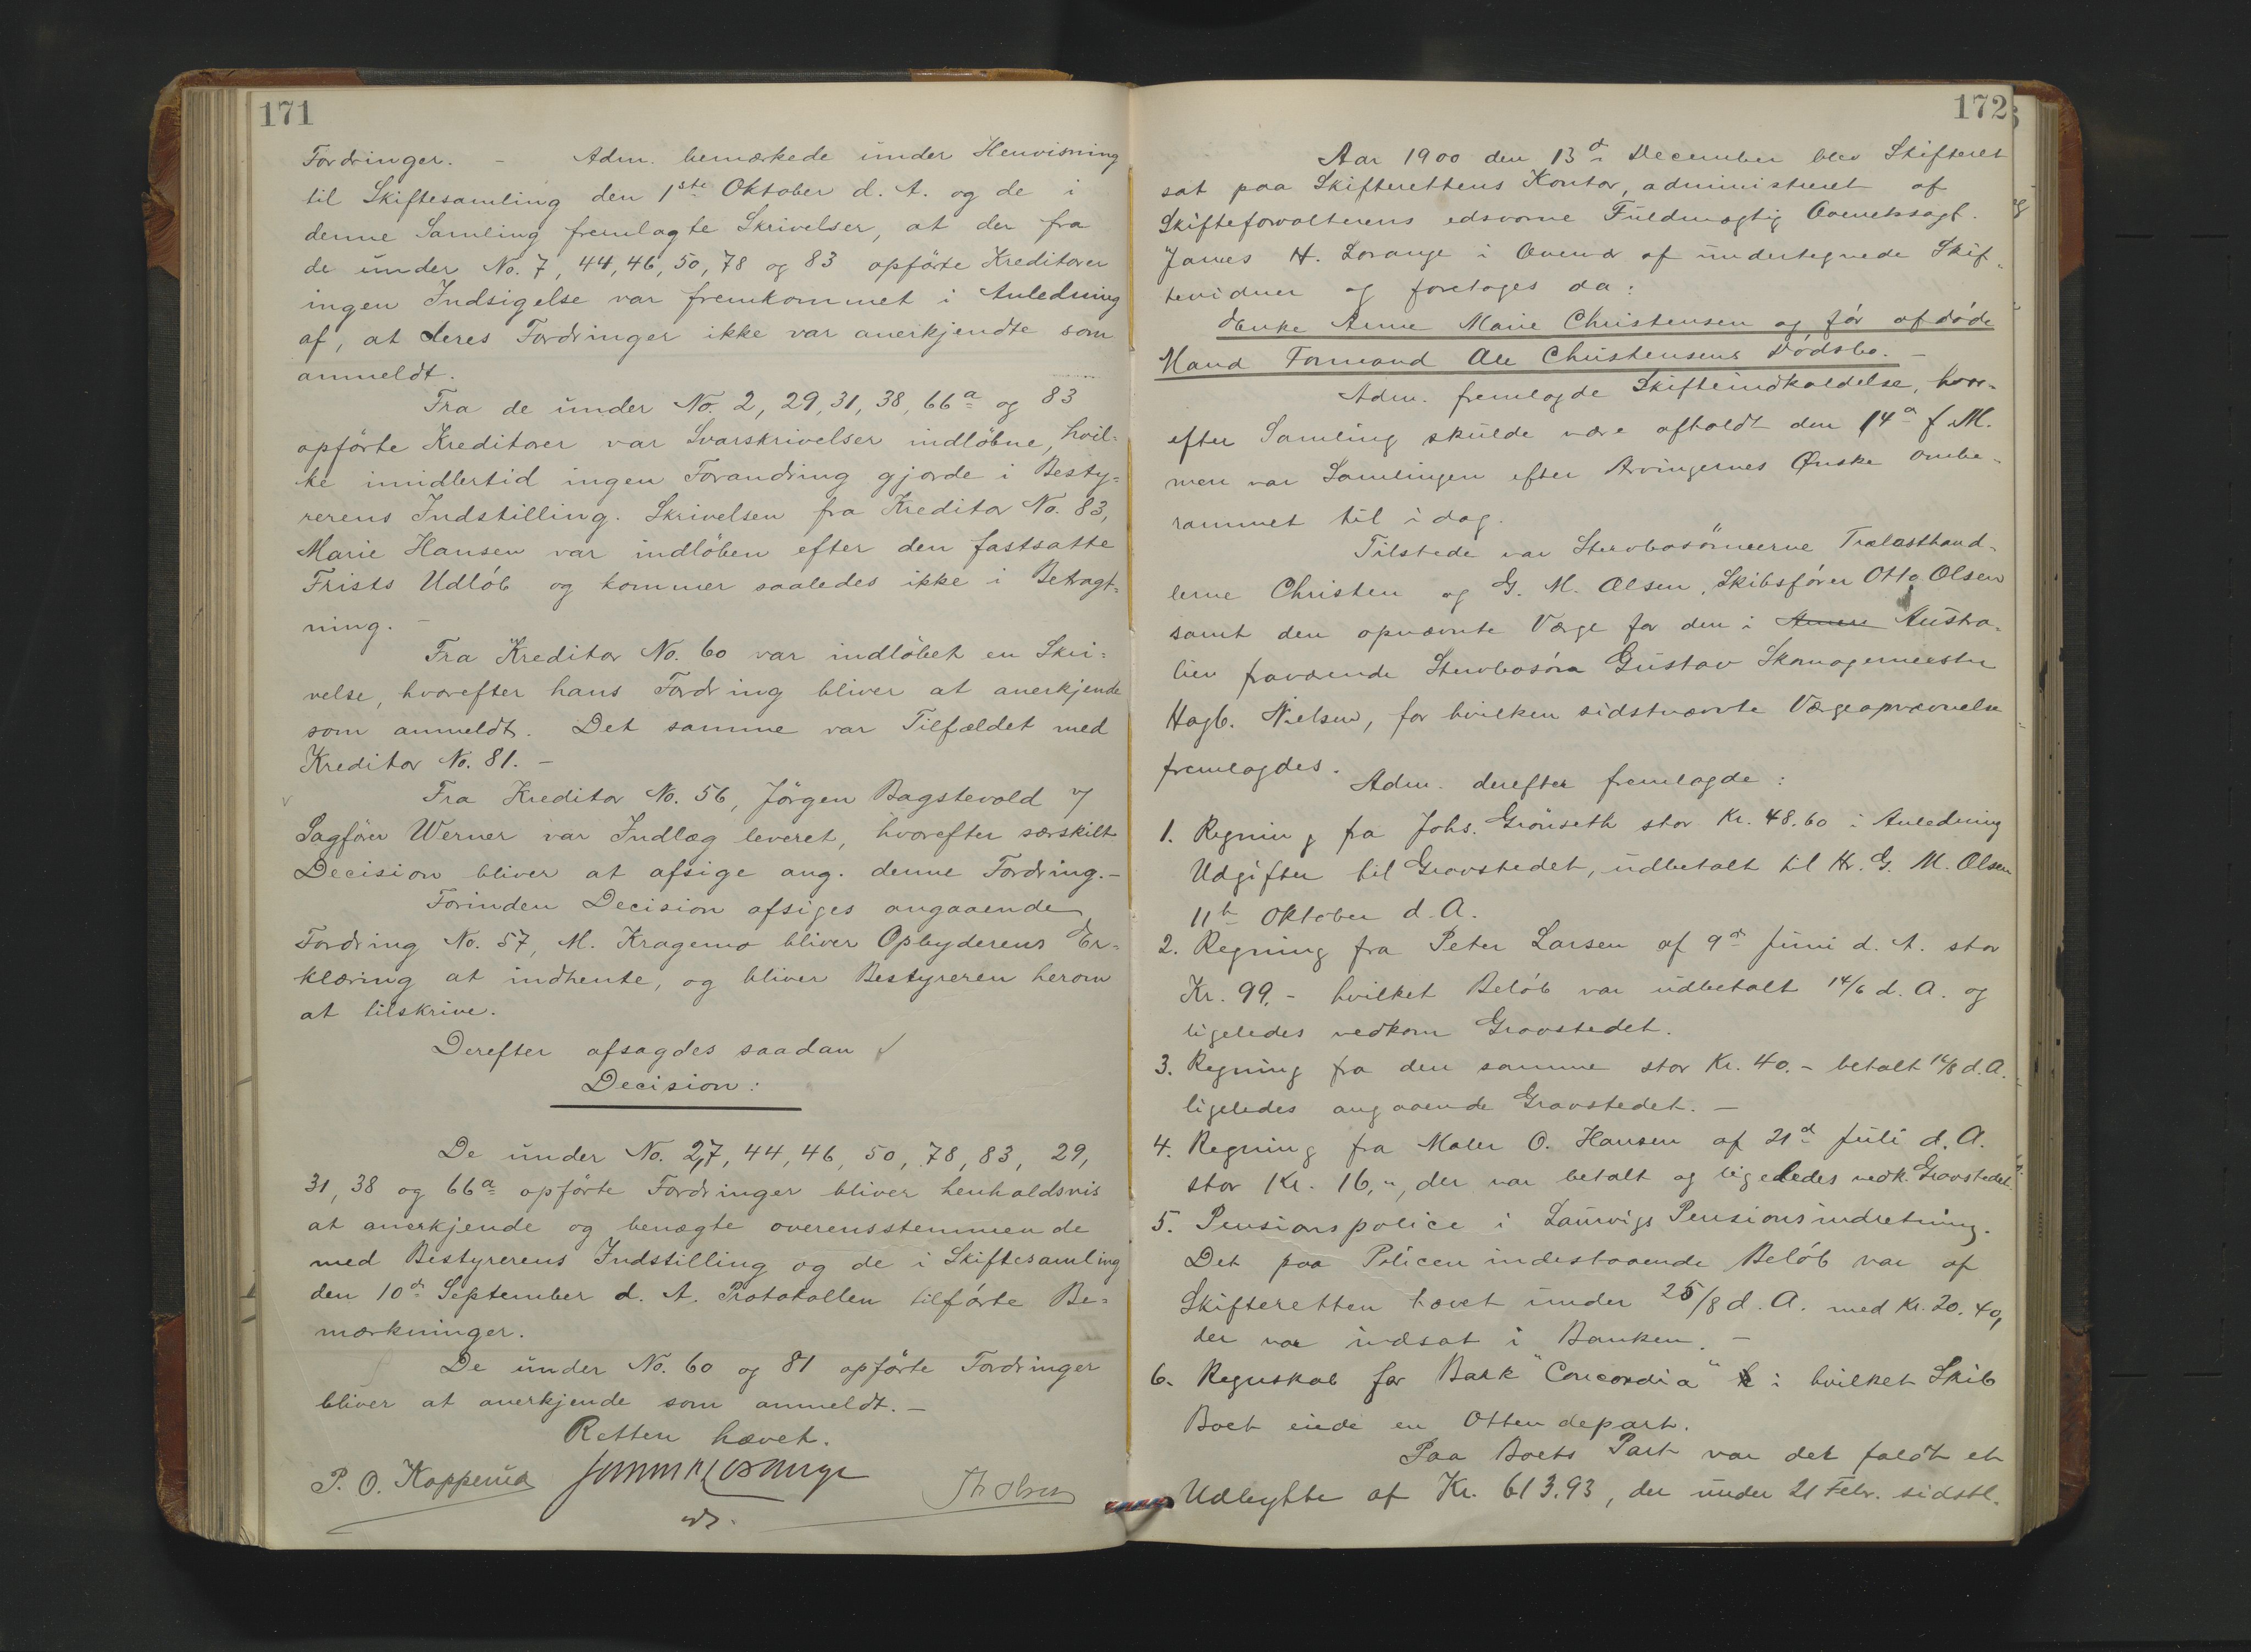 171
Fordringer. - Adm. bemærkede under Henvisning
til Skiftesamling den 1ste Oktober d. A. og de i
denne Samling fremlagte Skrivelser, at der fra
de under No. 7, 44, 46, 50, 78 og 83 opførte Kreditorer
ingen Indsigelse var fremkommet i Anledning
af, at deres Fordringer ikke var anerkjendte som
anmeldt.
Fra de under No. 2, 29, 31, 38, 66a og 83
opførte Kreditorer var Svarskrivelser indløbne, hvil=
ke imidlertid ingen Forandring gjorde i Besty=
rerens Indstilling. Skrivelsen fra Kreditor No. 83,
Marie Hansen var indløben efter den fastsatte
Frists Udløb og kommer saaledes ikke i Betragt=
ning. -
Fra Kreditor No. 60 var indløbet en Skri=
velse, hvorefter hans Fordring bliver at anerkjende
som anmeldt. Det samme var Tilfældet med
Kreditor No. 81. -
Fra Kreditor No. 56, Jörgen Bagstevold v/
Sagfører Werner var Indlæg leveret, hvorefter særskilt
Decision bliver at afsige ang. denne Fordring. -
Forinden Decision afsiges angaaende
Fordring No. 57, M. Kragemo bliver Opbyderens Er=
klæring at indhente, og bliver Bestyreren herom
at tilskrive.
Derefter afsagdes saadan
Decision:
De under No. 2, 7, 44, 46, 50, 78, 83, 29,
31, 38 og 66a opførte Fordringer bliver henholdsvis
at anerkjende og benægte overensstemmende
med Bestyrerens Indstilling og de i Skiftesamling
den 10d September d. A. Protokollen tilførte Be=
mærkninger.
De under No. 60 og 81 opførte Fordringer
bliver at anerkjende som anmeldt. -
Retten hævet.
P. O. Kopperud
172
Aar 1900 den 13d December blev Skifteret
sat paa Skifterettens Kontor, administreret af
Skifteforvalterens edsvorne Fuldmægtig Overretssagf.
James H. Lorange i Overvær af undertegnede Skif=
tevidner og foretoges da:
Enke Anne Marie Christensen og før afdøde
Mand Formand Ole Christensens Dødsbo. -
Adm. fremlagde Skifteindkaldelse, hvor=
efter Samling skulde være afholdt den 14d f. M.
men var Samlingen efter Arvingernes Ønske ombe=
rammet til idag.
Tilstede var Stervbosönnerne Trælasthand=
lerne Christen og G. M. Olsen, Skibsfører Otto Olsen
samt den opnævnte Værge for den i Amer Austra=
lien fraværende Stervbosön Gustav Skomagermester
Hagb. Nielsen, for hvilken sidstnævnte Værgeopnævnelse
fremlagdes.
Adm. derefter fremlagde:
1. Regning fra Johs. Grönseth stor Kr. 48.60 i Anledning
Udgifter til Gravstedet, udbetalt til Hr. G. M. Olsen
11te Oktober d. A.
2. Regning fra Peter Larsen af 9d Juni d. A. stor
Kr. 99, - hvilket Beløb var udbetalt 14/6 d. A. og
ligeledes vedkom Gravstedet.
3. Regning fra den samme stor Kr. 40. - betalt 14/8 d. A.
ligeledes angaaende Gravstedet. -
4. Regning fra Maler O. Hansen af 21d Juli d. A.
stor Kr. 16,", der var betalt og ligeledes vedk. Gravstedet.
5. Pensionspolice i Laurvigs Pensionsindretning.
Det paa Policen indestaaende Beløb var af
Skifteretten hævet under 25/8 d. A. med Kr. 20.40,
der var indsat i Banken. -
6. Regnskab for Bark "Concordia" i hvilket Skib
Boet eiede en Ottendepart.
Paa Boets Part var det faldt et
Udbytte af Kr. 613.93, der under 21 Febr. sidstl.